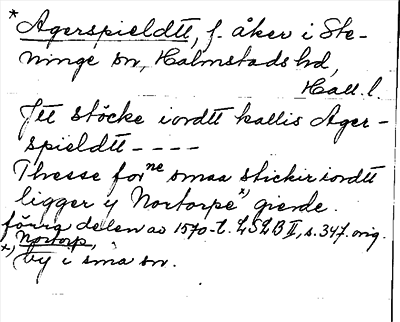 * Agerspieldtt, f. åker i Ste-
ninge sn, Halmstads hd,
Hall. l.
Jtt stöcke iordtt kallis Ager-
spieldtt - - - -
Thresse forne smaa stickir iordtt
ligger y Nortorpe x) gierde.
förra delen av 1570-t. LSLB II, s. 347. orig.
x) Nortorp,
by i sma sn.